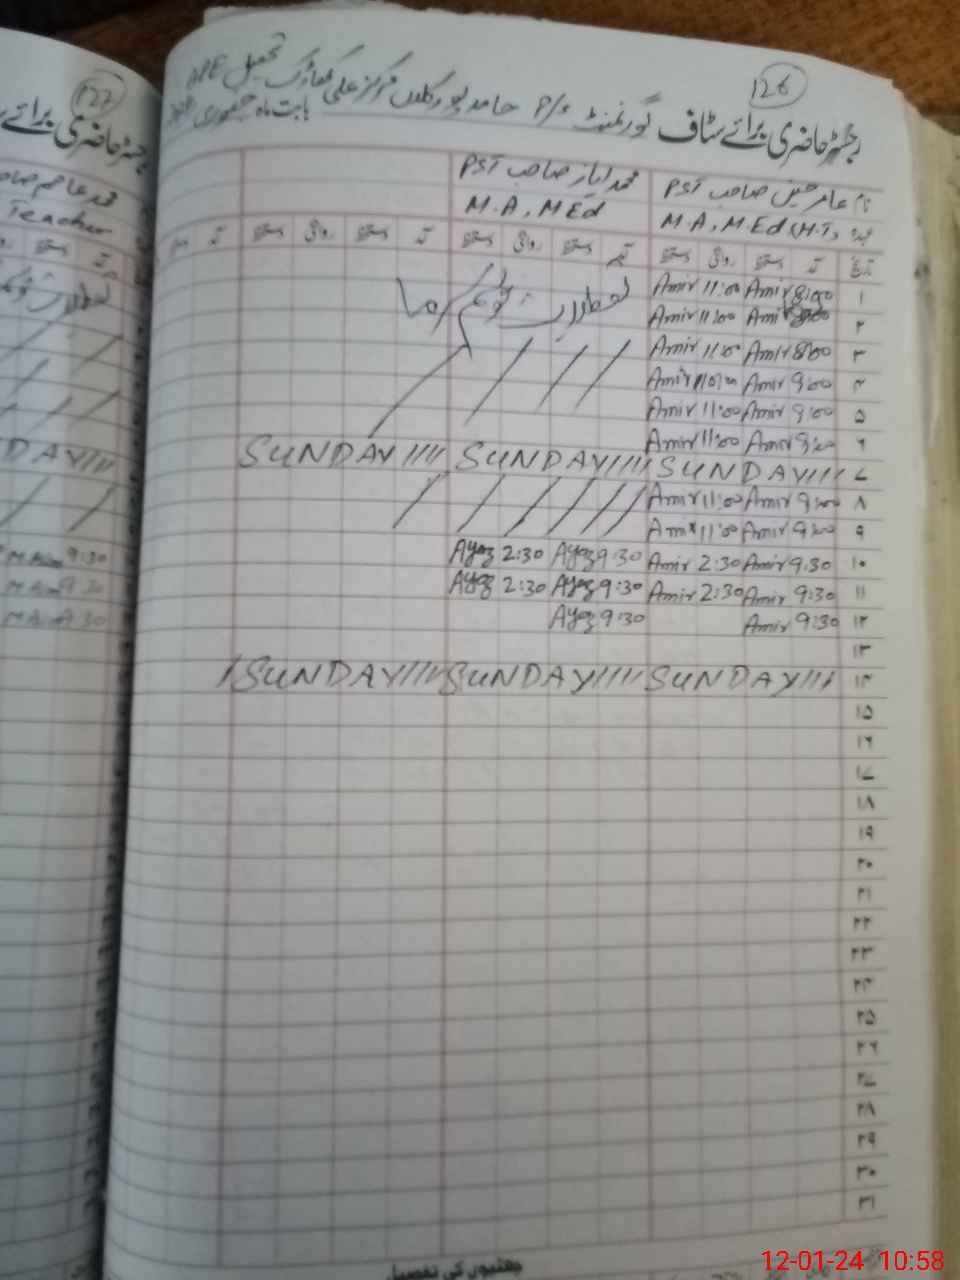 126
رجسٹر حاضری برائے سٹاف گورنمنٹ P/S حامد پور کلاں مرکز علی تحصیل
بابت ماہ جنوری
نام عامر حسین صاحب PST محمد ایاز صاحب PST
عہدہ M.A, M.Ed (H.T) M.A, M.Ed
تاریخ آمد دستخط روانگی دستخط آمد دستخط روانگی دستخط آمد دستخط روانگی دستخط آمد
۱ 8:00 Amir 11:00 Amir تعطیلات موسم سرما
۲ Amir 11:00 Amir
۳ 8:00 Amir 11:00 Amir
۴ 9:00 Amir 11:00 Amir
۵ 9:00 Amir 11:00 Amir
۶ 9:00 Amir 11:00 Amir
۷ SUNDAY//// SUNDAY//// SUNDAY////
۸ 9:00 Amir 11:00 Amir
۹ 9:00 Amir 11:00 Amir
۱۰ 9:30 Amir 2:30 Amir 9:30 Ayaz 2:30 Ayaz
۱۱ 9:30 Amir 2:30 Amir 9:30 Ayaz 2:30 Ayaz
۱۲ 9:30 Amir 9:30 Ayaz
۱۳
۱۴ SUNDAY/// SUNDAY//// SUNDAY////
۱۵
۱۶
۱۷
۱۸
۱۹
۲۰
۲۱
۲۲
۲۳
۲۴
۲۵
۲۶
۲۷
۲۸
۲۹
۳۰
۳۱
چھٹیوں کی تفصیل
127
رجسٹر حاضری برائے
محمد عاصم
Teacher
تعطیلات
DAY///
9:30
9:30
12-01-24 10:58